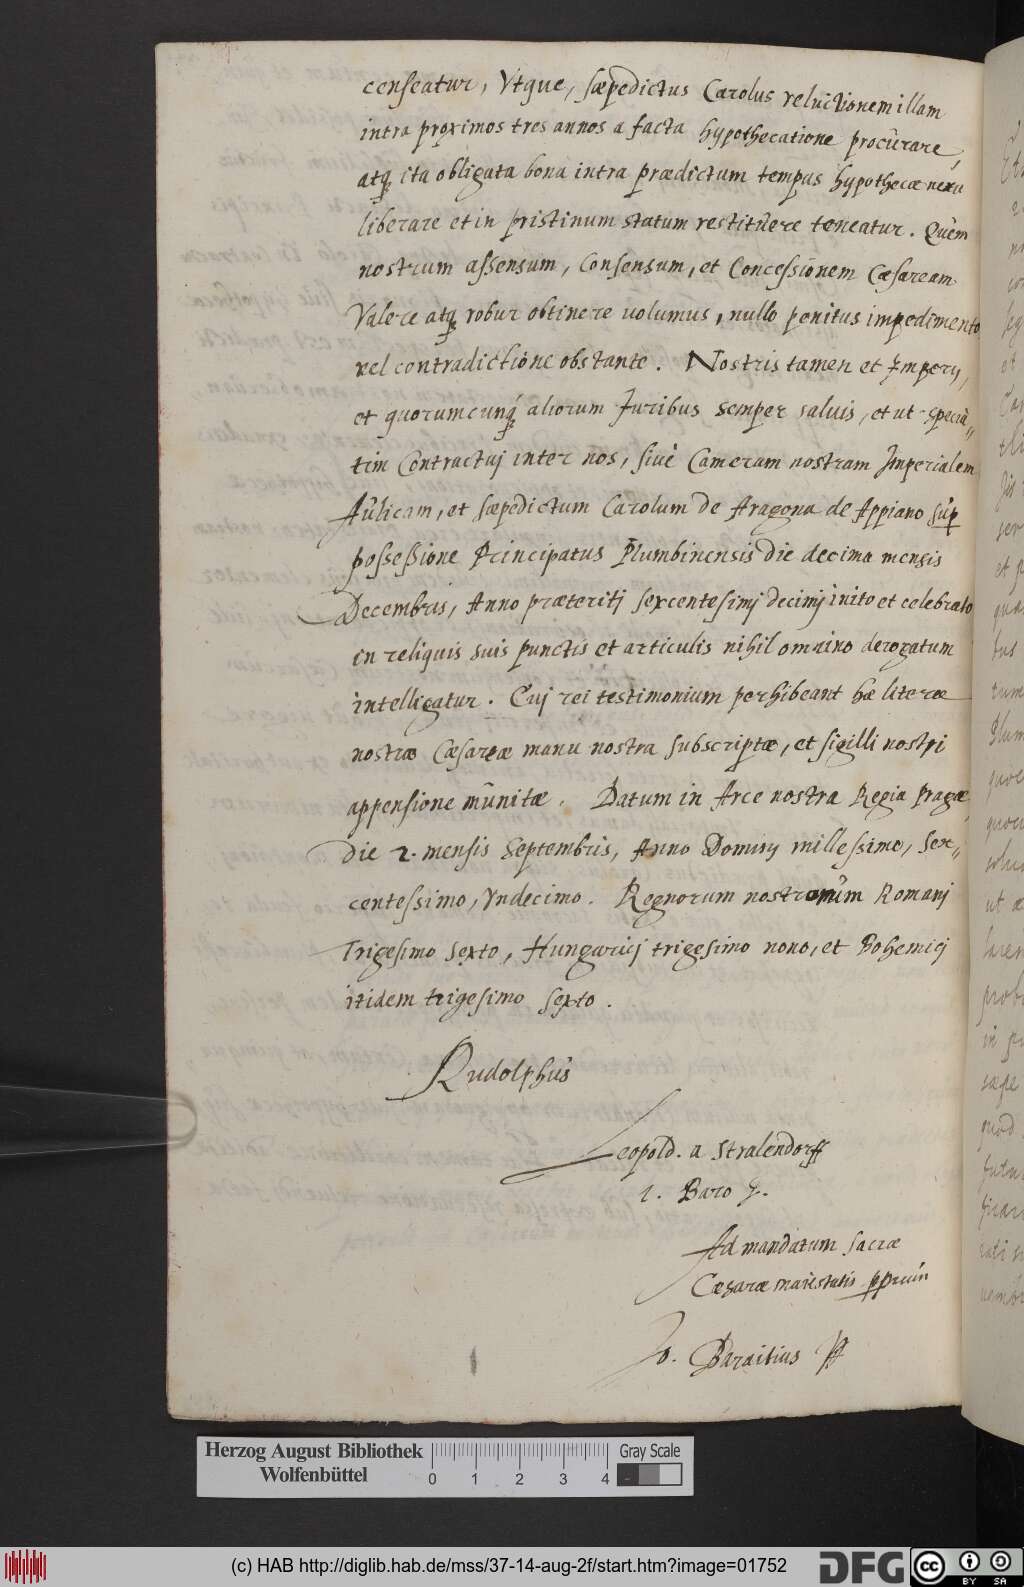 censeatur, Vtque, sæpedictus Carolus reluitionem illam
intra proximos tres annos a facta hypothecatione procurare,
atq; ita obligata bona intra prædictum tempus hypothecæ nexu
liberare et in pristinum statum restituere teneatur. Quem
nostrum assensum, Consensum, et Concessionem Cæsaream
Valere atq; robur obtinere uolumus, nullo penitus impedimento
vel contradictione obstante. Nostris tamen et Imperij,
et quorumcunq; aliorum Iuribus semper saluis, et ut specia„
tim Contractuj inter nos, siue Cameram nostram Imperialem
Aulicam, et sæpedictum Carolum de Aragona de Appiano sup
possessione Principatus Plumbinensis die decima mensis
Decembris, Anno præteritj sexcentesimj decimj inito et celebrato
in reliquis suis punctis et articulis nihil omnino derogatum
intelligatur. Cuj rei testimonium perhibeant hæ literæ
nostræ Cæsareæ manu nostra subscriptæ, et sigilli nostri
appensione munitæ. Datum in Arce nostra Regia Pragæ
die 2. mensis Septembris, Anno Dominj millessimo, Sex„
centessimo, Vndecimo. Regnorum nostrorum Romanj
Trigesimo sexto, Hungaricj trigesimo nono, et Bohemicj
itidem trigesimo sexto.
Rudolphus
Leopold. a Stralendorff
L. Baro
Ad mandatum sacræ
Cæsaræ maiestatis pprium
Jo. Barvitius
Herzog August Bibliothek
Wolfenbüttel
0 1 2 3 4
Gray Scale
(c) HAB http://diglib.hab.de/mss/37-14-aug-2f/start.htm?image=01752
DFG
cc BY SA